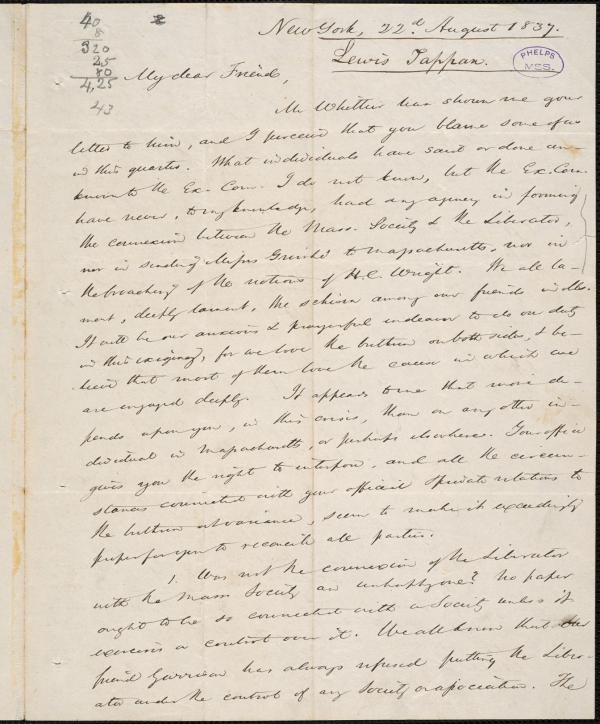 40
8
320
25
80
4,25
43
2
New York, 22d August 1837.
Lewis Tappan.
PHELPS
MSS.
My dear Friend,
Mr Whittier has shown me your
letter to him, and I perceive that you blame some of us
in this quarter. What individuals have said or done un-
known to the Ex. Com. I do not know, but the Ex. Com.
have never, to my knowledge, had any agency in forming
the connexion between the Mass. Society & the Liberator,
nor in sending Misses Grimké to Massachusetts, nor in
the broaching of the notions of H. C. Wright. We all la-
ment, deeply lament, the schism among our friends in Mss.
It will be our anxious & prayerful endeavor to do our duty
in this exigency, for we love the brethren on both sides, & be-
lieve that most of them love the cause in which we
are engaged deeply. It appears to me that more de-
pends upon you, in this crisis, than on any other in-
dividual in Massachusetts, or perhaps elsewhere. Your office
gives you the right to interpose, and all the circum-
stances connected with your official & private relations to
the brethren at variance, seem to make it exceedingly
proper for you to reconcile all parties.
1. Was not the connexion of the Liberator
with the Mass Society an unhappy one? No paper
ought to be so connected with a Society unless it
exercises a control over it. We all know that our
friend Garrison has always refused putting the Liber-
ator under the control of any Society or association. The